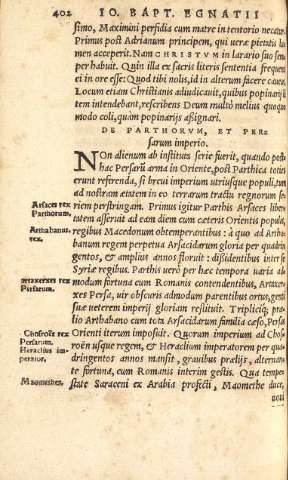 402 IO. BAPT. EGNATII
simo, Maximini perfidia cum matre in tentorio necatur.
Primus post Adrianum principem, qui uerae pietatis lu
men acceperit. Nam CHRISTVM in larario suo sem
per habuit. Quin illa ex sacris literis sententia frequens
ei in ore esse: Quod tibi nolis, id in alterum facere caue.
Locum etiam Christianis adiudicauit, quibus popinarij li
tem intendebant, rescribens Deum multò melius quoquo
modo coli, quàm popinarijs assignari.
DE PARTHORVM, ET PER
sarum imperio.
NOn alienum ab instituta serie fuerit, quando post
hac Persarū arma in Oriente, post Parthica toties
erunt referenda, si breui imperium utriusque populi, tum
ad nostram aetatem in eo terrarum tractu regnorum se
Arsaces rex
Parthorum.
riem perstringam. Primus igitur Parthis Arsaces liber
tatem asseruit ad eam diem cum caeteris Orientis populis,
Arthabanus
rex.
regibus Macedonum obtemperantibus: à quo ad Artha
banum regem perpetua Arsacidarum gloria per quadrin
gentos, & amplius annos floruit: dissidentibus inter se
Syriae regibus. Parthis uerò per haec tempora uaria ad
Artaxerxes rex
Persarum.
modum fortuna cum Romanis contendentibus, Artaxer
xes Persa, uir obscuris admodum parentibus ortus, genti
suae ueterem imperij gloriam restituit. Triplicíq; prae
lio Arthabano cum tota Arsacidarum familia caeso, Persas
Chosroës rex
Persarum.
Heraclius im-
perator.
Orienti iterum imposuit. Quorum imperium ad Chos
roën usque regem, & Heraclium imperatorem per qua
dringentos annos mansit, grauibus praelijs, alternan
te fortuna, cum Romanis interim gestis. Qua tempe
Maomethes.
state Saraceni ex Arabia profecti, Maomethe duce,
ueti